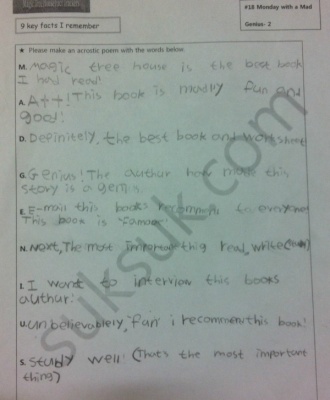 #18 Monday with a Mad
Genius- 2
9 key facts I remember
★ Please make an acrostic poem with the words below.
M. Magic tree house is the best book
I had read!
A. A++! This book is madly fun and
good!
D. Definitely, the best book and worksheet
G. Genius! The author how make this
story is a genius.
E. E-mail this books recomment to everyone
This book is "famous"
N. Next, The most important thing read, write
I. I want to interview this books
authur!
U. Un believablely, fun i recommen this book!
S. Study well! (That's the most important
thing)
suksuk.com